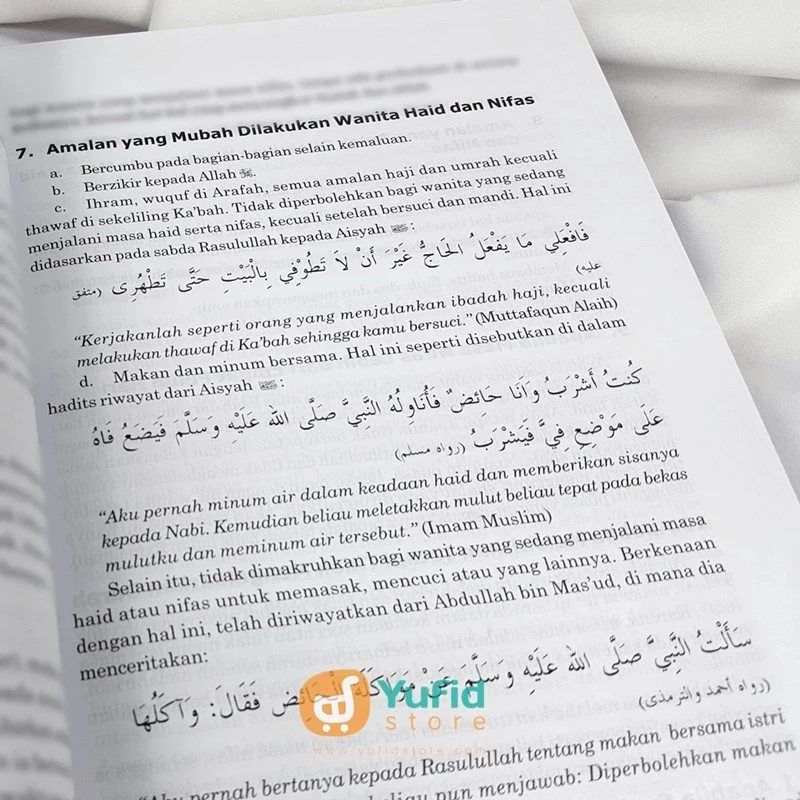 7. Amalan yang Mubah Dilakukan Wanita Haid dan Nifas
a. Bercumbu pada bagian-bagian selain kemaluan.
b. Berzikir kepada Allah ﷻ.
c. Ihram, wuquf di Arafah, semua amalan haji dan umrah kecuali
thawaf di sekeliling Ka'bah. Tidak diperbolehkan bagi wanita yang sedang
menjalani masa haid serta nifas, kecuali setelah bersuci dan mandi. Hal ini
didasarkan pada sabda Rasulullah kepada Aisyah :
فَافْعَلِي مَا يَفْعَلُ الْحَاجُّ غَيْرَ أَنْ لاَ تَطُوْفِي بِالْبَيْتِ حَتَّى تَطْهُرِى (متفق
عليه)
“Kerjakanlah seperti orang yang menjalankan ibadah haji, kecuali
melakukan thawaf di Ka'bah sehingga kamu bersuci.” (Muttafaqun Alaih)
d. Makan dan minum bersama. Hal ini seperti disebutkan di dalam
hadits riwayat dari Aisyah :
كُنتُ أَشْرَبُ وَأَنَا حَائِضٌ فَأُنَاوِلُهُ النَّبِيَّ صَلَّى اللهُ عَلَيْهِ وَسَلَّمَ فَيَضَعُ فَاهُ
عَلَى مَوْضِعِ فِيَّ فَيَشْرَبُ (رواه مسلم)
“Aku pernah minum air dalam keadaan haid dan memberikan sisanya
kepada Nabi. Kemudian beliau meletakkan mulut beliau tepat pada bekas
mulutku dan meminum air tersebut.” (Imam Muslim)
Selain itu, tidak dimakruhkan bagi wanita yang sedang menjalani masa
haid atau nifas untuk memasak, mencuci atau yang lainnya. Berkenaan
dengan hal ini, telah diriwayatkan dari Abdullah bin Mas'ud, di mana dia
menceritakan:
سَأَلْتُ النَّبِيَّ صَلَّى اللهُ عَلَيْهِ وَسَلَّمَ عَنْ مَوَاكَلَةِ الْحَائِضِ فَقَالَ: وَآكَلُهَا
(رواه أحمد والترمذى)
Yufid
store
www.yufidstore.com
“Aku pernah bertanya kepada Rasulullah tentang makan bersama istri
beliau pun menjawab: Diperbolehkan makan